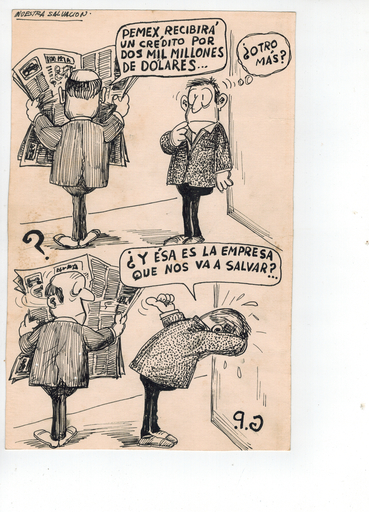 NUESTRA SALVACION.
PEMEX, RECIBIRÁ
UN CRÉDITO POR
DOS MIL MILLONES
DE DOLARES...
¿OTRO
MÁS?
?
¿Y ÉSA ES LA EMPRESA
QUE NOS VA A SALVAR?...
G.P.